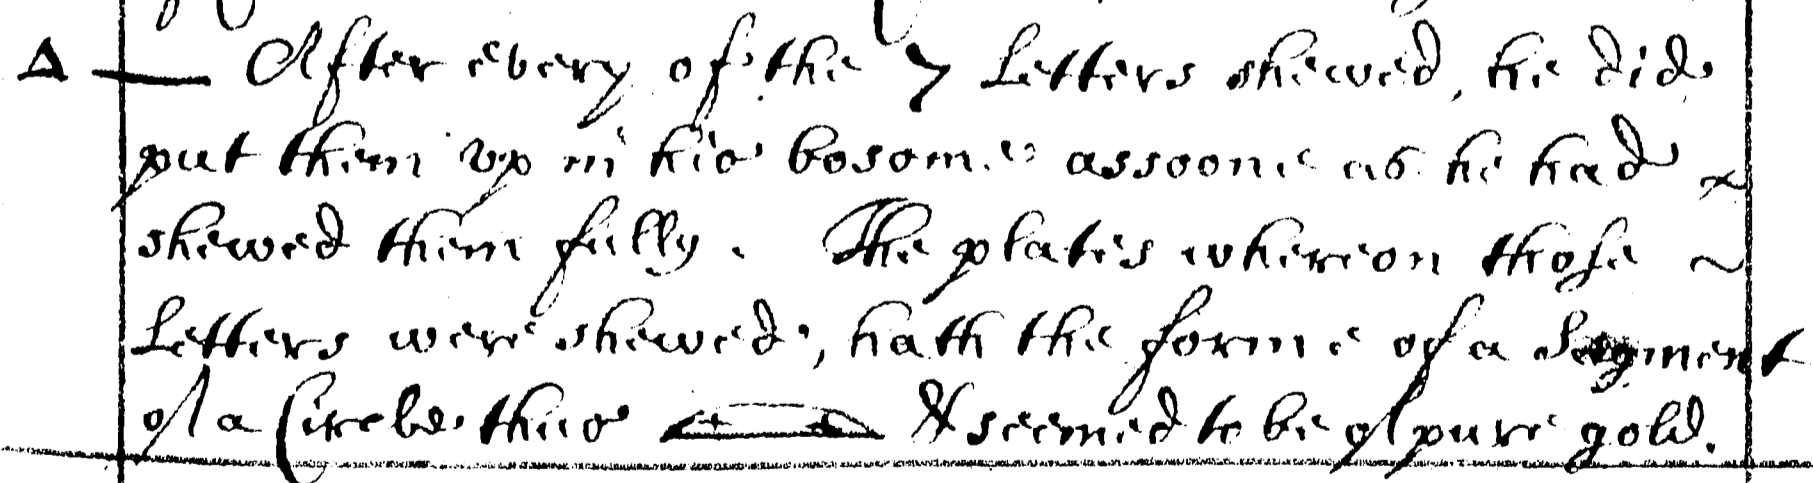 Δ — After every of the 7 Letters shewed, he did
put them vp in his bosome assoone as he had ~
shewed them fully. The plates whereon those ~
Letters were shewed, hath the forme of a Segment
of a Circle thus & seemed to be of pure gold.